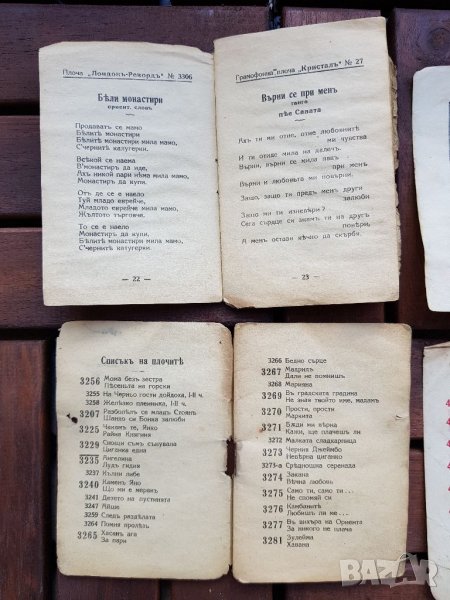 Плоча „Лондонъ-Рекордъ" № 3306
Бѣли монастири
ориент. слова
Продаватъ се мамо
Бѣлитѣ монастири
Бѣлитѣ монастири мила мамо,
С'чернитѣ калугерки.
Всѣкой се наема
В'монастиръ да иде,
Ахъ никой пари нѣма мила мамо,
Монастиръ да купи.
Отъ де се е наело
Туй младо еврейче,
Младото еврейче мила мамо,
Жълтото търговче.
То се е наело
Монастиръ да купи,
Бѣлитѣ монастири мила мамо,
С'чернитѣ калугерки.
— 22 —
Грамофонна плоча „Кристалъ" № 27
Върни се при менъ
танго
пѣе Савата
Ахъ ти ми отне, отне любовнитѣ
ми чувства
И ти отиде мила на далечъ.
Върни, върни се мила пакъ
при менъ
Върни и любовьта ми повърни.
Защо, защо ти предъ менъ други
залюби
Защо ми ти изневѣри?
Сега сърдце си имамъ ти на другъ
повѣри,
А менъ остави вѣчно да скърбя.
— 23 —
Списъкъ на плочитѣ
3256 Мома безъ зестра
Пѣсеньта на горски
3255 На Черньо гости дойдоха, I-II ч.
3258 Желѣзко пленника, I-II ч.
3207 Разболѣлъ се младъ Стоянъ
Шамко си Бонка залюби
3225 Чакамъ те, Янко
Райна Княгиня
3229 Снощи съмъ сънувала
Циганка една
3235 Ангелина
Лудъ гидия
3237 Кълни либе
3240 Камень Яно
Що ми е мерамъ
3241 Детето на пустинята
3247 Айше
3259 Следъ раздѣлата
3264 Помня пролѣть
3265 Хасанъ ага
За пари
3266 Бедно сърце
3267 Маарилъ
Дали не помнишъ
3268 Марияна
3269 Въ градската градина
Не зная твоето име, мадамъ
3270 Прости, прости
Марнита
3271 Бѫди ми вѣрна
Кажи, ще плачешъ ли
3272 Малката сладкарница
3273 Черния Джеймбо
Невѣрна циганко
3273-а Срѣднощна серенада
3274 Закана
Вѣчна любовь
3275 Само ти, само ти...
Не спомняй си
3276 Камбанитѣ
Любишъ ли ме...
3277 Въ вихъра на Ориента
За никого не плача
3281 Зулейма
Хавана
BAZAR